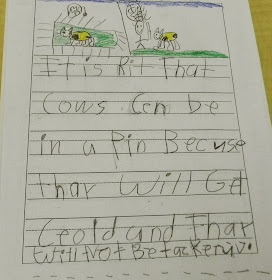 It is Rit That
Cows Cen be
in a Pin Becuse
thar Will Get
Ceold and Thar
Will Not Be tacken uv.